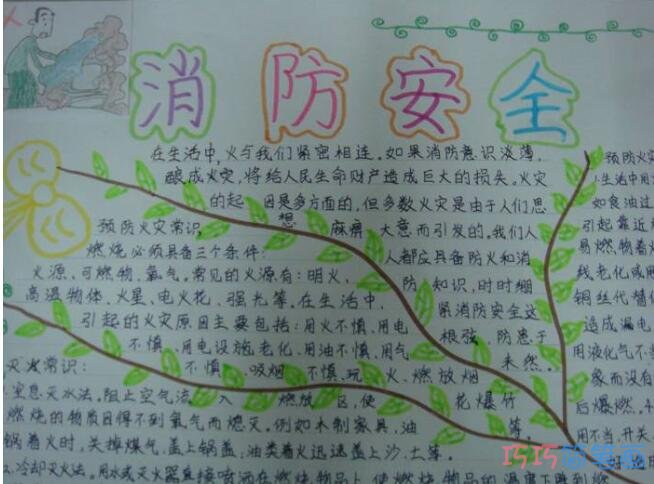 消防安全
在生活中,火与我们紧密相连。如果消防意识淡薄,
酿成火灾,将给人民生命财产造成巨大的损失。火灾
的起 因是多方面的,但多数火灾是由于人们思
想 麻痹 大意而引发的。我们人
人都应具备防火和消
防 知识,时时绷
紧消防安全这
根弦,防患于
未然。
预防火灾常识
燃烧必须具备三个条件:
火源、可燃物、氧气。常见的火源有:明火、
高温物体、火星、电火花、强光等。在生活中,
引起的火灾原因主要包括:用火不慎、用电
不慎、用电设施老化、用油不慎、用气
不慎、吸烟 不慎、玩 火、燃放烟
花爆竹
等。
灭火常识:
1.窒息灭火法。阻止空气流 入 燃放 区,使
燃烧的物质因得不到氧气而熄灭。例如木制家具,油
锅着火时,关掉煤气,盖上锅盖,油类着火迅速盖上沙、土等。
2.冷却灭火法。用水或灭火器直接喷洒在燃烧物品上,使燃烧物品的温度下降到燃
预防火
生活中用
如食油过
引起靠近
易燃物着
线老化或
铜丝代替
造成漏电
用液化气不
象而没有
后爆燃。4
用不当,开关
巧巧简笔画